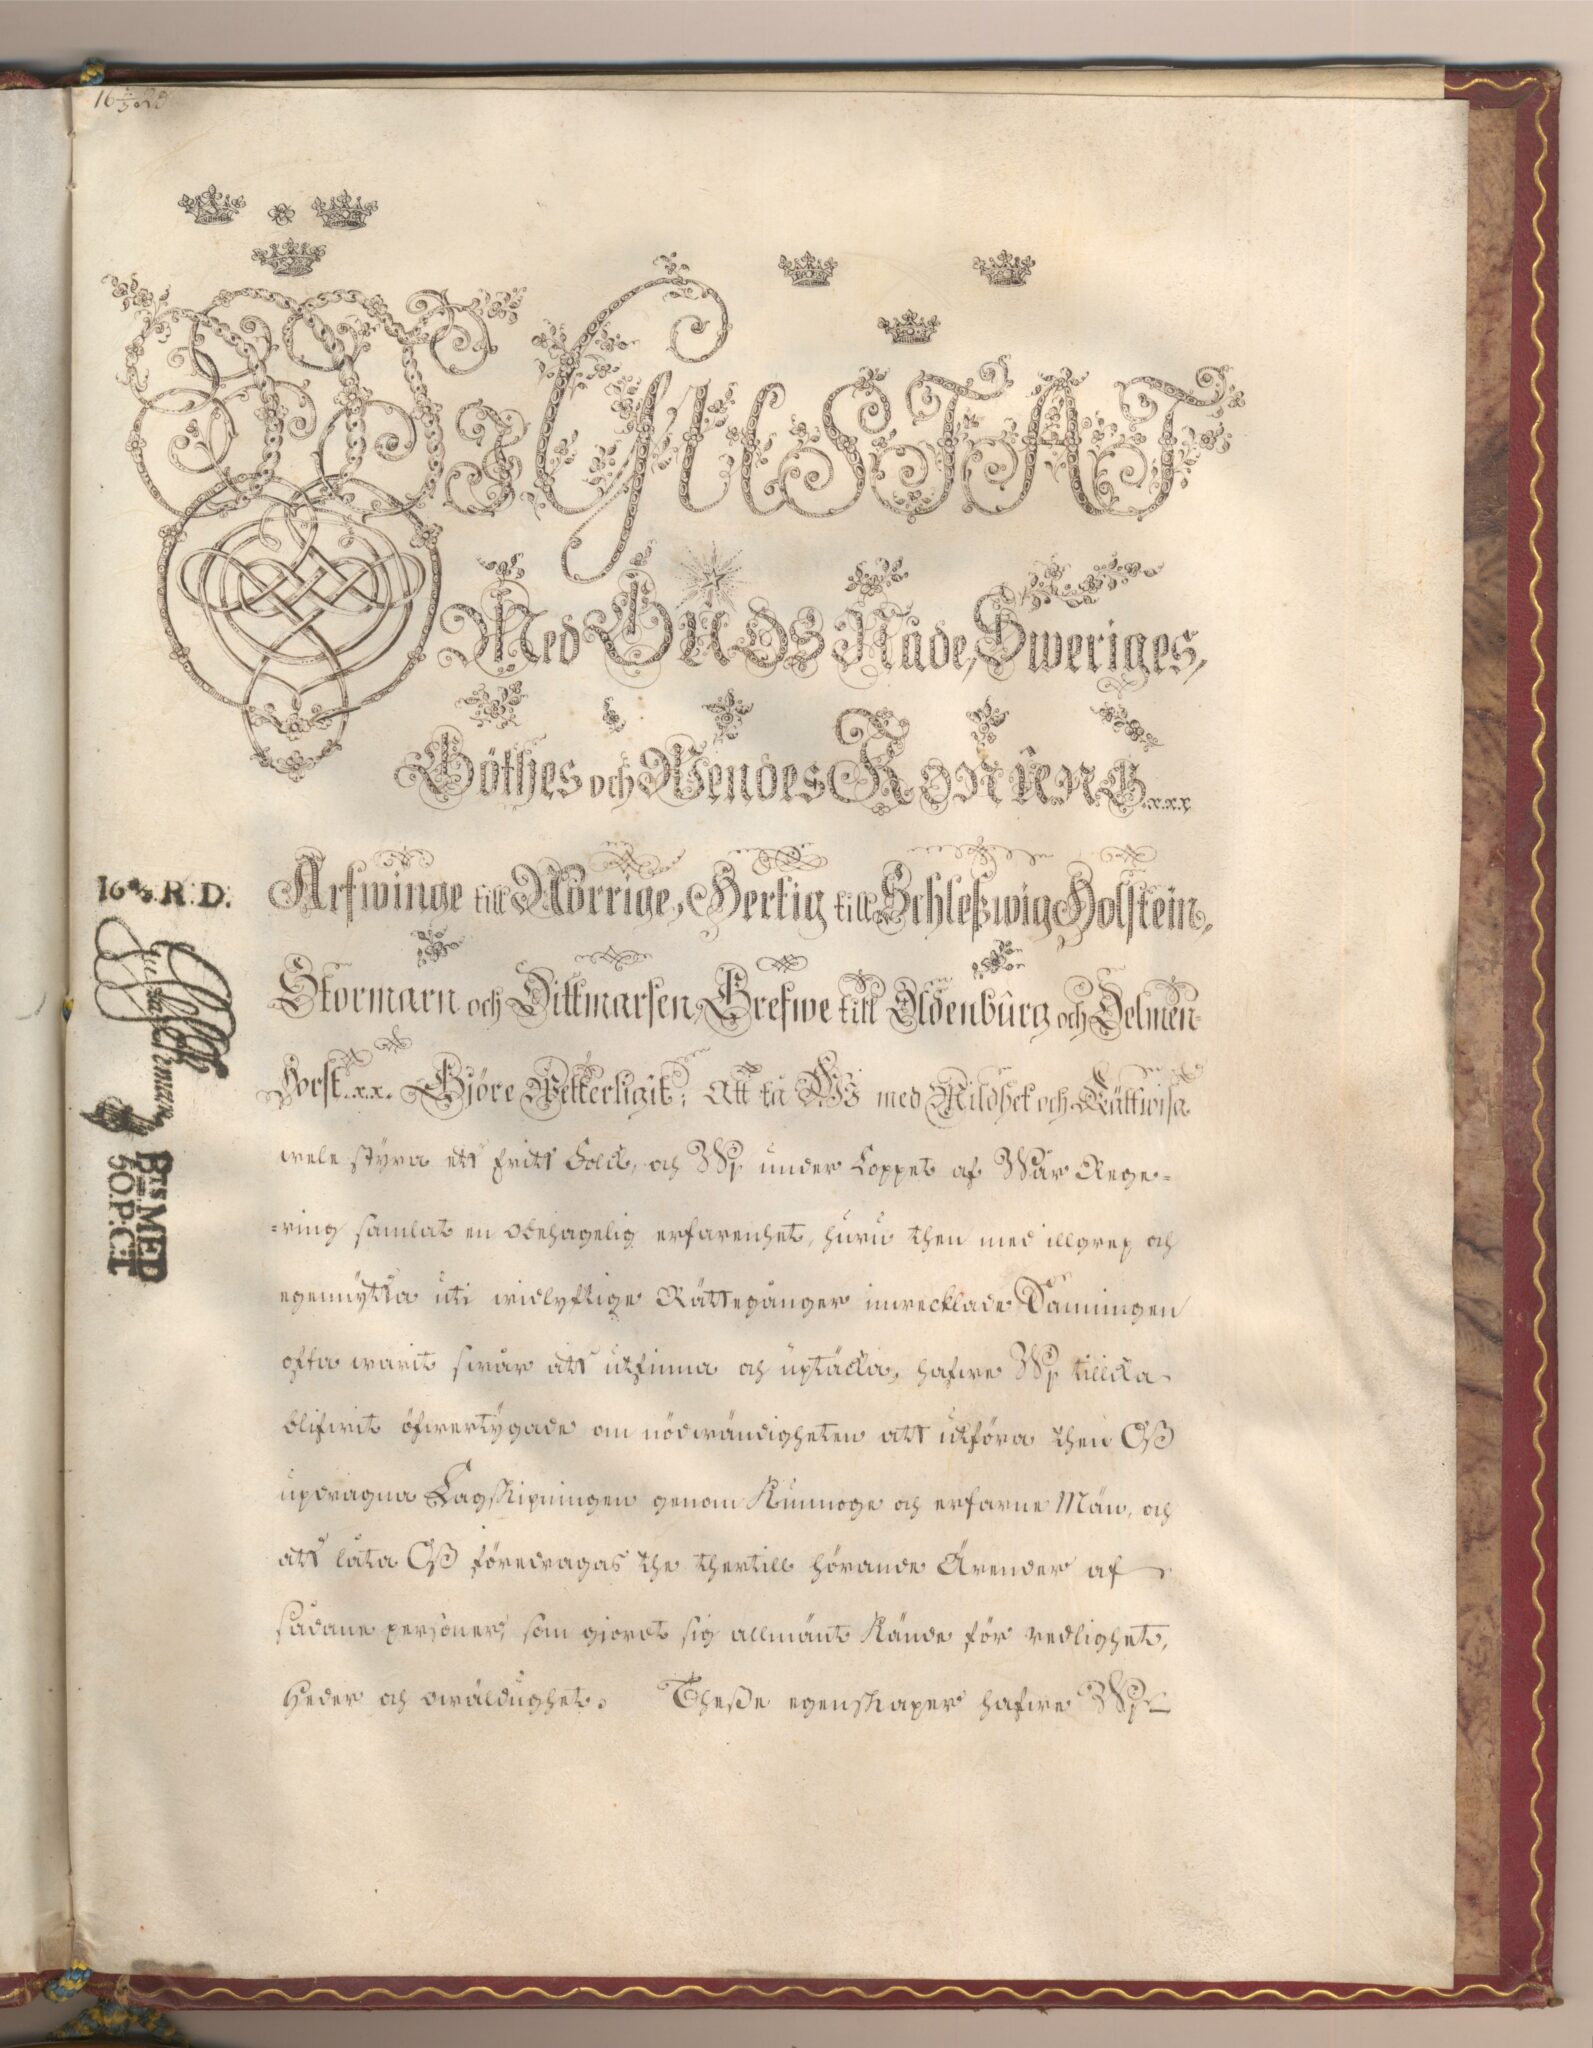 16 2/3 RD
Wi GUSTAF
Med GUDS Nåde, Sweriges,
Göthes och Wendes KONUNG.x.x.x
Arfwinge till Norrige, Hertig till Schleßwig Holstein,
Stormarn och Dittmarsen, Grefwe till Oldenburg och Delmen-
horst.x.x. Gjöre Wetterligit: Att tå Wi med Mildhet och Rättwisa
16 2/3. R: D:
wele styra ett fritt Folck, och Wj under Loppet af Wår Rege-
BtS MED
50. P: C:T
=ring samlat en obehagelig erfarenhet, huru then med illgrep och
egennytta uti widlyftige Rättegånger inwecklade Sanningen
ofta warit swår att utfinna och uptäcka, hafwe Wj tillika
blifwit öfwertygade om nödwändigheten att utföra then Oß
updragna Lagskipningen genom Kunnoge och erfarne Män, och
att låta Oß föredragas the thertill hörande Ärender af
sådane personer, som gjordt sig allmänt Kände för redlighet,
heder och owäldughet. Theße egenskaper hafwe Wj